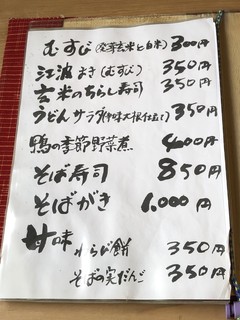 むすび(発芽玄米と白米) 300円
江波まき(むすび) 350円
玄米のちらし寿司 350円
うどんサラダ(中味大根仕立て) 350円
鴨の季節野菜煮 400円
そば寿司 850円
そばがき 1.000円
甘味
わらび餅 350円
そばの実だんご 350円